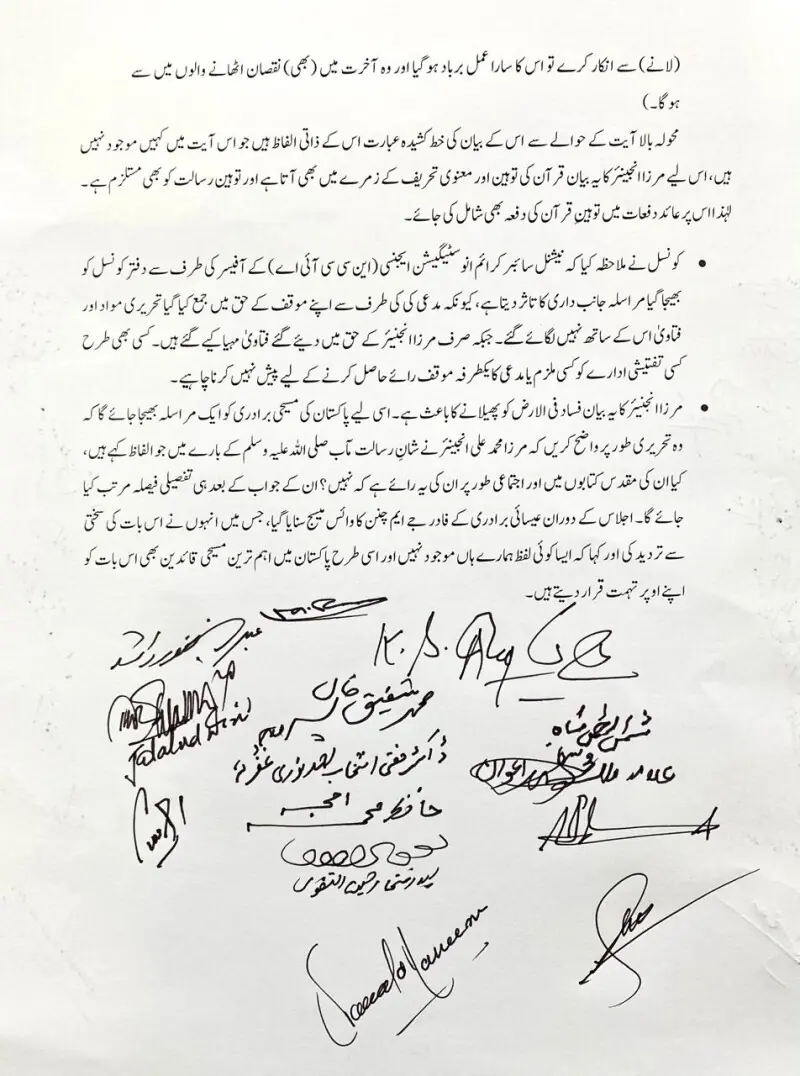 (لانے) سے انکار کرے تو اس کا سارا عمل برباد ہو گیا اور وہ آخرت میں (بھی) نقصان اٹھانے والوں میں سے
ہو گا۔)
محولہ بالا آیت کے حوالے سے اس کے بیان کی خط کشیدہ عبارت اس کے ذاتی الفاظ ہیں جو اس آیت میں کہیں موجود نہیں
ہیں، اس لیے مرزا انجینئر کا یہ بیان قرآن کی توہین اور معنوی تحریف کے زمرے میں بھی آتا ہے اور توہین رسالت کو بھی مستلزم ہے۔
لہٰذا اس پر عائد دفعات میں توہینِ قرآن کی دفعہ بھی شامل کی جائے۔
• کونسل نے ملاحظہ کیا کہ نیشنل سائبر کرائم انوسٹیگیشن ایجنسی (این سی سی آئی اے) کے آفیسر کی طرف سے دفتر کونسل کو
بھیجا گیا مراسلہ جانب داری کا تاثر دیتا ہے، کیونکہ مدعی کی کی طرف سے اپنے موقف کے حق میں جمع کیا گیا تحریری مواد اور
فتاویٰ اس کے ساتھ نہیں لگائے گئے۔ جبکہ صرف مرزا انجنیئر کے حق میں دیئے گئے فتاویٰ مہیا کیے گئے ہیں۔ کسی بھی طرح
کسی تفتیشی ادارے کو کسی ملزم یا مدعی کا یکطرفہ موقف رائے حاصل کرنے کے لیے پیش نہیں کرنا چاہیے۔
• مرزا انجنیئر کا یہ بیان فساد فی الارض کو پھیلانے کا باعث ہے۔ اسی لیے پاکستان کی مسیحی برادری کو ایک مراسلہ بھیجا جائے گا کہ
وہ تحریری طور پر واضح کریں کہ مرزا محمد علی انجینئر نے شانِ رسالت مآب صلی اللہ علیہ وسلم کے بارے میں جو الفاظ کہے ہیں،
کیا ان کی مقدس کتابوں میں اور اجتماعی طور پر ان کی یہ رائے ہے کہ نہیں؟ ان کے جواب کے بعد ہی تفصیلی فیصلہ مرتب کیا
جائے گا۔ اجلاس کے دوران عیسائی برادری کے فادر جے ایم چنن کا وائس میسج سنایا گیا، جس میں انہوں نے اس بات کی سختی
سے تردید کی اور کہا کہ ایسا کوئی لفظ ہمارے ہاں موجود نہیں اور اسی طرح پاکستان میں اہم ترین مسیحی قائدین بھی اس بات کو
اپنے اوپر تہمت قرار دیتے ہیں۔
عبدالغفور راشد
K. S.
محمد شفیق خان
Jalalud Din
شمس الرحمٰن
ڈاکٹر مفتی انتخاب احمد نوری
علامہ ملک اعوان
حافظ محمد امجد
سید افتخار حسین النقوی